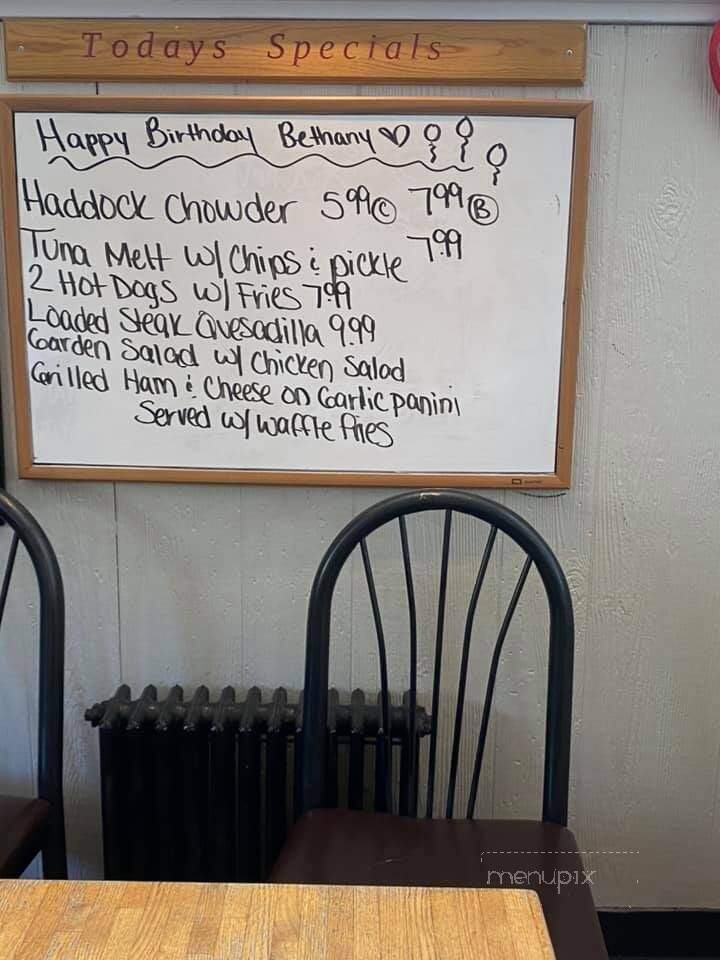 Todays Specials
Happy Birthday Bethany
Haddock Chowder 5.99 C 7.99 B
Tuna Melt w/ Chips & pickle 7.99
2 Hot Dogs w/ Fries 7.99
Loaded Steak Quesadilla 9.99
Garden Salad w/ Chicken Salad
Grilled Ham & Cheese on Garlic panini
Served w/ waffle fries
menupix